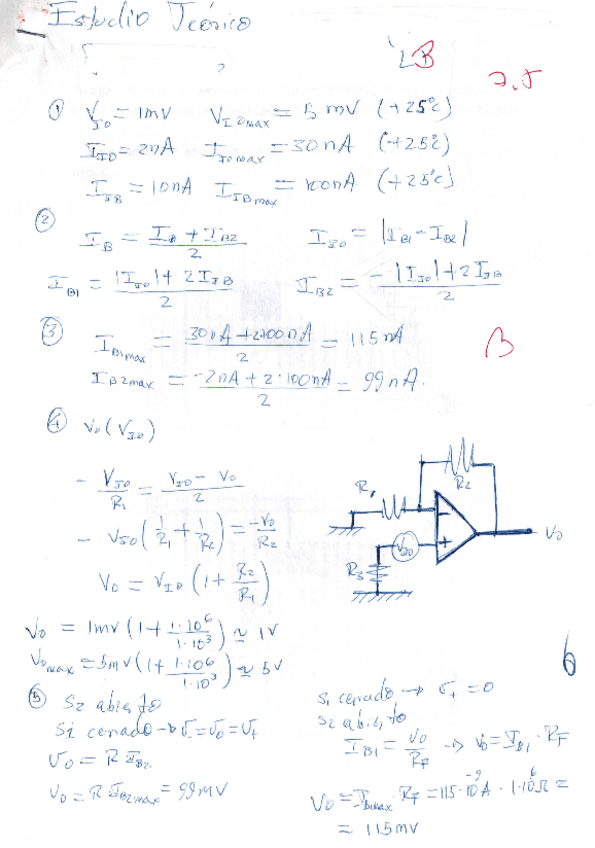 Estudio Teórico
B
7.5
① V_IO = 1mV   V_IOmax = 5 mV (+25°C)
I_IO = 2nA   I_IOmax = 30 nA (+25°C)
I_IB = 10nA   I_IBmax = 100nA (+25°C)
② I_B = (I_B1 + I_B2)/2   I_IO = |I_B1 - I_B2|
I_B1 = (|I_IO| + 2I_IB)/2   I_B2 = (-|I_IO| + 2I_IB)/2
③ I_B1max = (30nA + 2·100nA)/2 = 115nA
B
I_B2max = (-2nA + 2·100nA)/2 = 99nA.
④ V_O(V_IO)
- V_IO/R_1 = (V_IO - V_O)/2
- V_IO(1/R_1 + 1/R_2) = -V_O/R_2
V_O = V_IO(1 + R_2/R_1)
R_1
R_2
V_IO
R_3
V_O
V_O = 1mV(1 + 1·10^6/1·10^3) ≈ 1V
V_Omax = 5mV(1 + 1·10^6/1·10^3) ≈ 5V
6
⑤ S2 abierto
S1 cerrado → V_- = V_O = V_+
V_O = R I_B2
V_O = R I_B2max = 99mV
S1 cerrado → V_+ = 0
S2 abierto
I_B1 = V_O/R_F → V_O = I_B1 · R_F
V_O = I_B1max · R_F = 115·10^-9 A · 1·10^6 Ω =
= 115mV